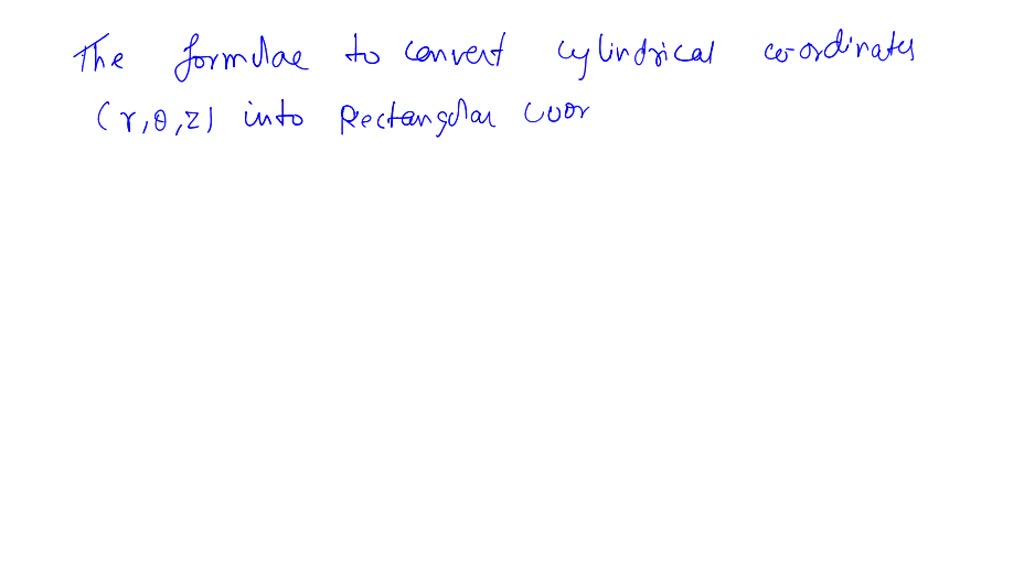 The formulae to convert cylindrical co-ordinates
(r,θ,z) into Rectangular coor